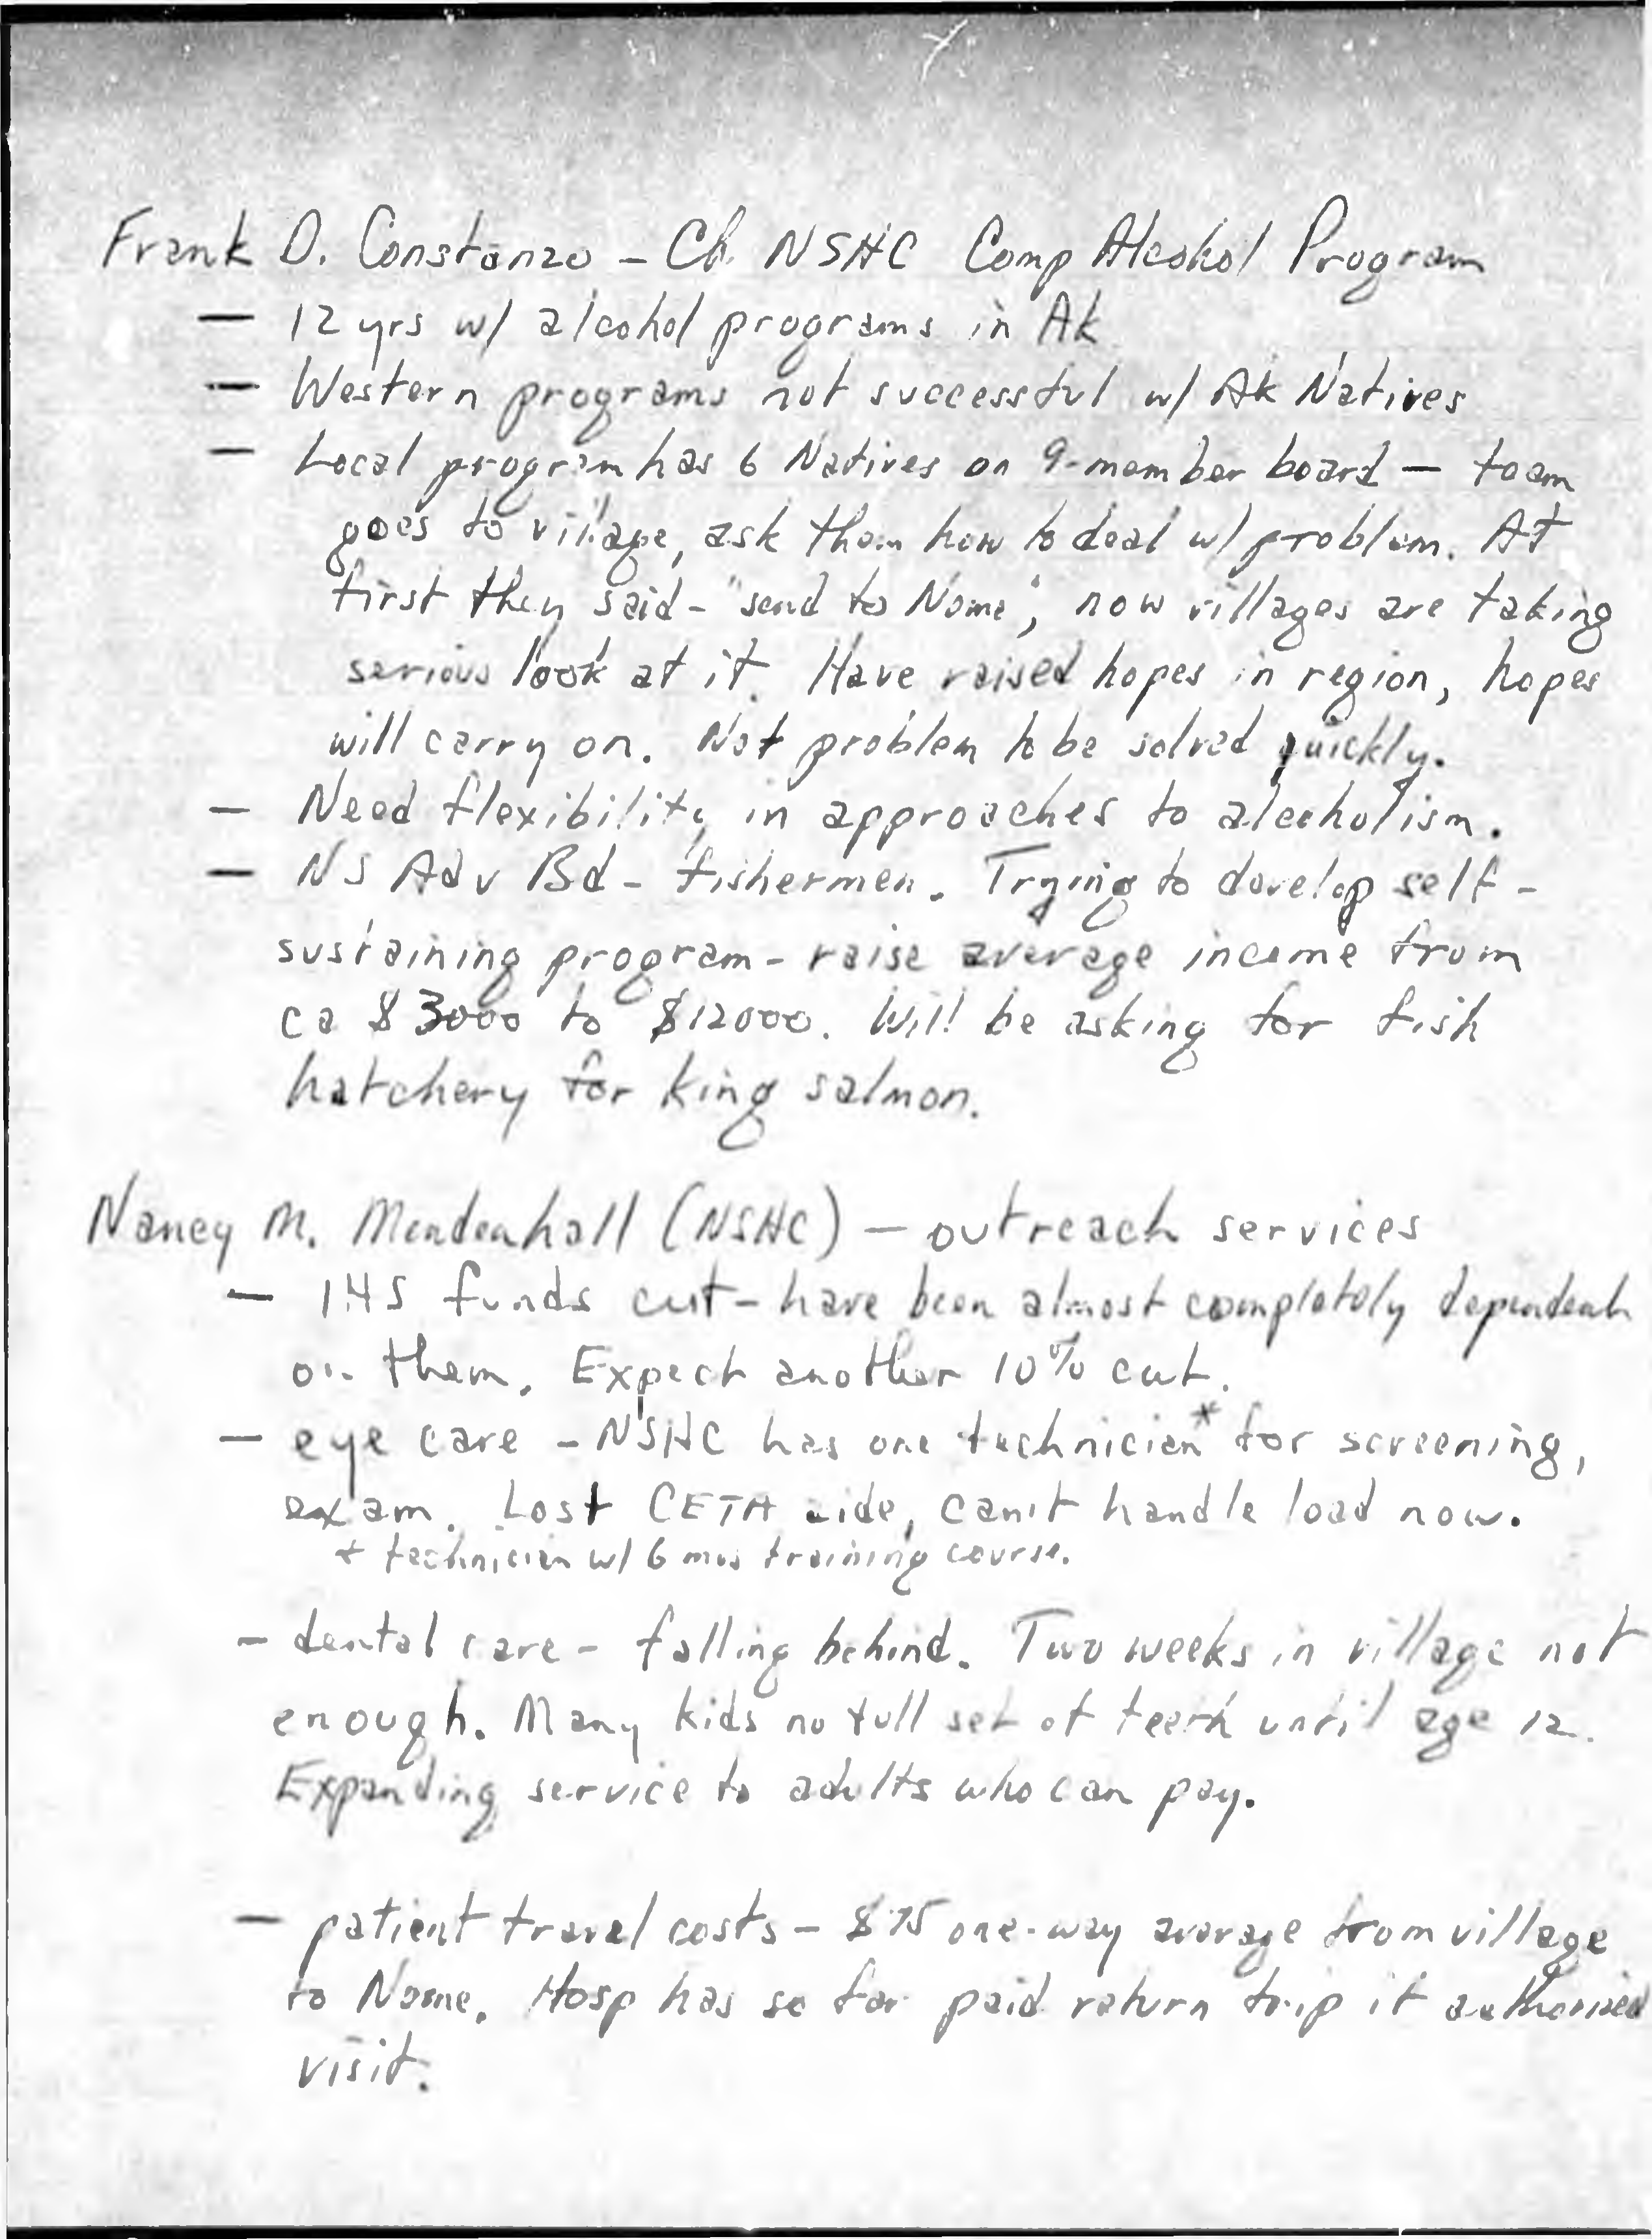 Frank D. Constanzo - Ch. NSHC Comp Alcohol Program
— 12 yrs w/ alcohol programs in Ak
— Western programs not successful w/ Ak Natives
— Local program has 6 Natives on 9-member board — team
goes to village, ask them how to deal w/ problem. At
first they said - "send to Nome", now villages are taking
serious look at it. Have raised hopes in region, hopes
will carry on. Not problem to be solved quickly.
— Need flexibility in approaches to alcoholism.
— NS Adv Bd - fishermen. Trying to develop self-
sustaining program - raise average income from
ca $3000 to $12000. Will be asking for fish
hatchery for king salmon.
Nancy M. Mendenhall (NSHC) — outreach services
— IHS funds cut - have been almost completely dependent
on them. Expect another 10% cut.
— eye care - NSHC has one technician* for screening,
exam. Lost CETA aide, can't handle load now.
* technician w/ 6 mos training course.
- dental care - falling behind. Two weeks in village not
enough. Many kids no full set of teeth until age 12.
Expanding service to adults who can pay.
— patient travel costs - $75 one-way average from village
to Nome. Hosp has so far paid return trip if authorized
visit.